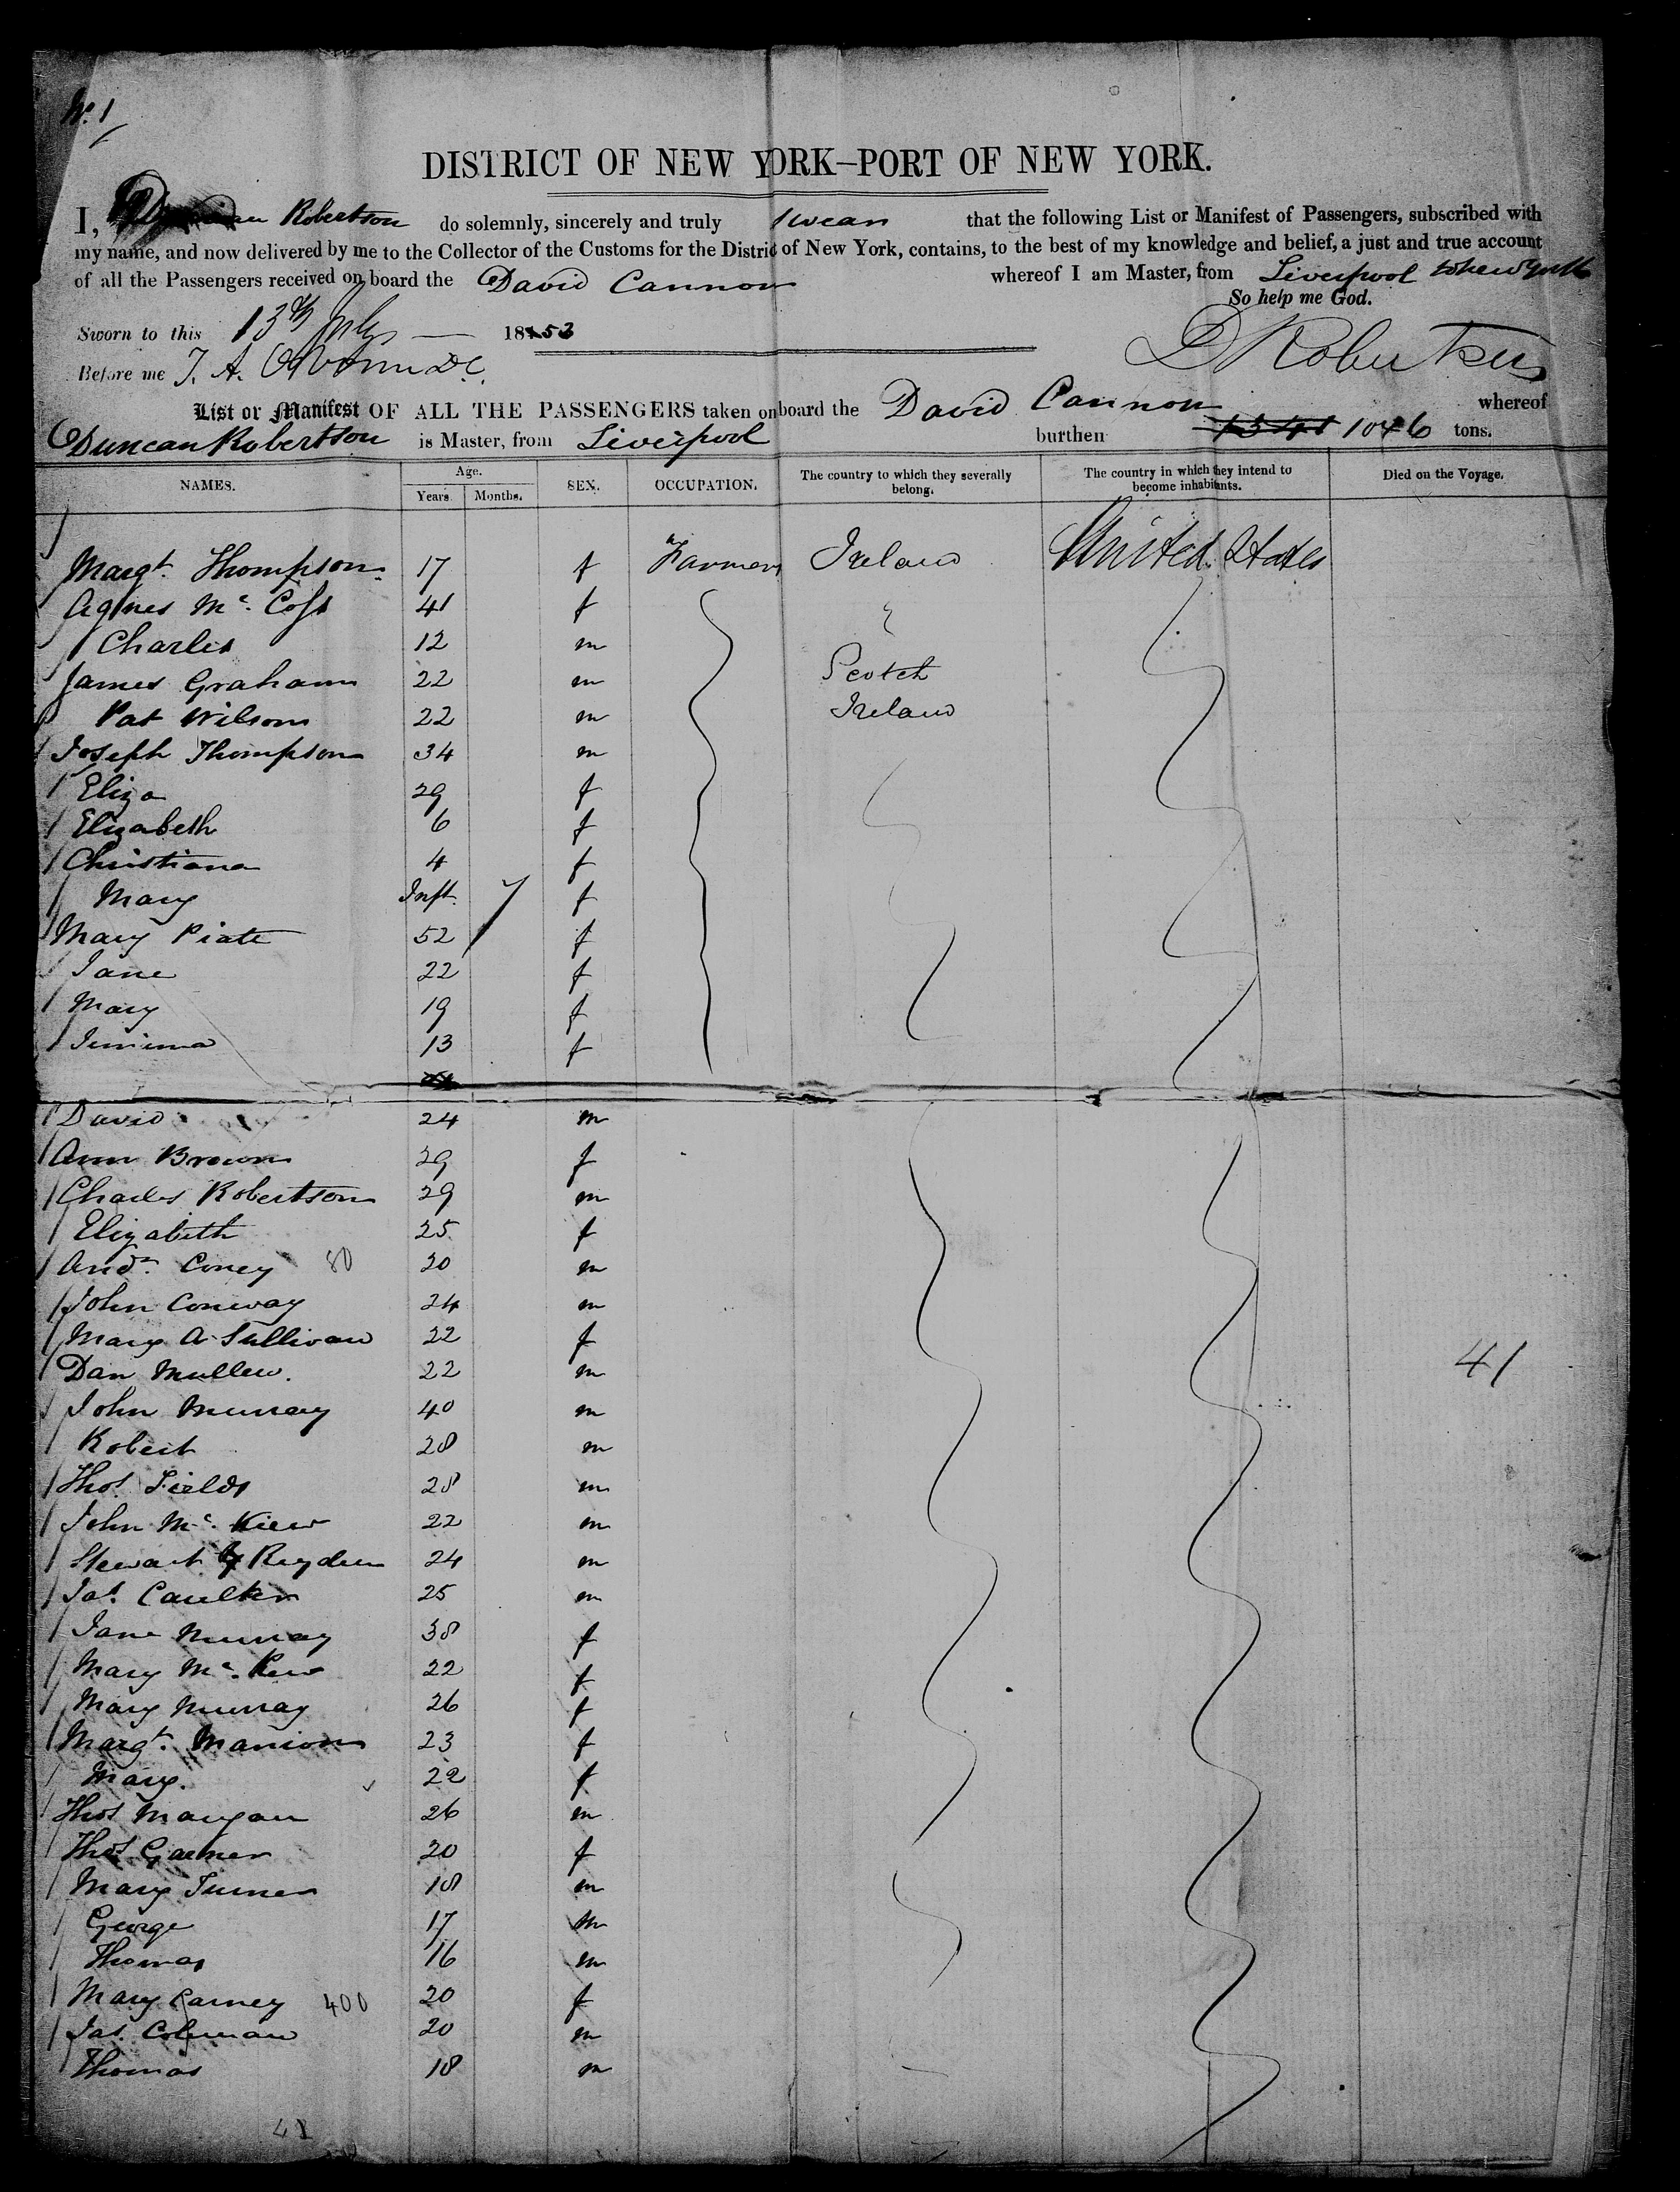 No. 1
DISTRICT OF NEW YORK-PORT OF NEW YORK.
I, Duncan Robertson do solemnly, sincerely and truly swear that the following List or Manifest of Passengers, subscribed with
my name, and now delivered by me to the Collector of the Customs for the District of New York, contains, to the best of my knowledge and belief, a just and true account
of all the Passengers received on board the David Cannon whereof I am Master, from Liverpool to New York
So help me God.
Sworn to this 13th July 1853
D Robertson
Before me T. A.
List or Manifest OF ALL THE PASSENGERS taken on board the David Cannon whereof
Duncan Robertson is Master, from Liverpool burthen 1046 tons.
NAMES. Age. Years. Months. SEX. OCCUPATION. The country to which they severally belong. The country in which they intend to become inhabitants. Died on the Voyage.
Margt. Thompson 17 f Farmers Ireland United States
Agnes Mc. 41 f "
Charles 12 m
James Graham 22 m Scotch
Pat Wilson 22 m Ireland
Joseph Thompson 34 m
Eliza 29 f
Elizabeth 6 f
Christiana 4 f
Mary Inft. 7 f
Mary Piate 52 f
Jane 22 f
Mary 19 f
Jemima 13 f
David 24 m
Ann Brown 29 f
Charles Robertson 29 m
Elizabeth 25 f
Andw. Coney 80 20 m
John Conway 24 m
Mary A Sullivan 22 f
Dan Mullew. 22 m 41
John Murray 40 m
Robert 28 m
Thos. Fields 28 m
John Mc. Kiew 22 m
Stewart 24 m
Jas. Caulker 25 m
Jane Murray 38 f
Mary Mc. 22 f
Mary Murray 26 f
Margt. Manion 23 f
Mary. 22 f
Thos Mangan 26 m
Thos Garner 20 f
Mary Turner 18 m
George 17 m
Thomas 16 m
Mary Carney 400 20 f
Jas. Colman 20 m
Thomas 18 m
41